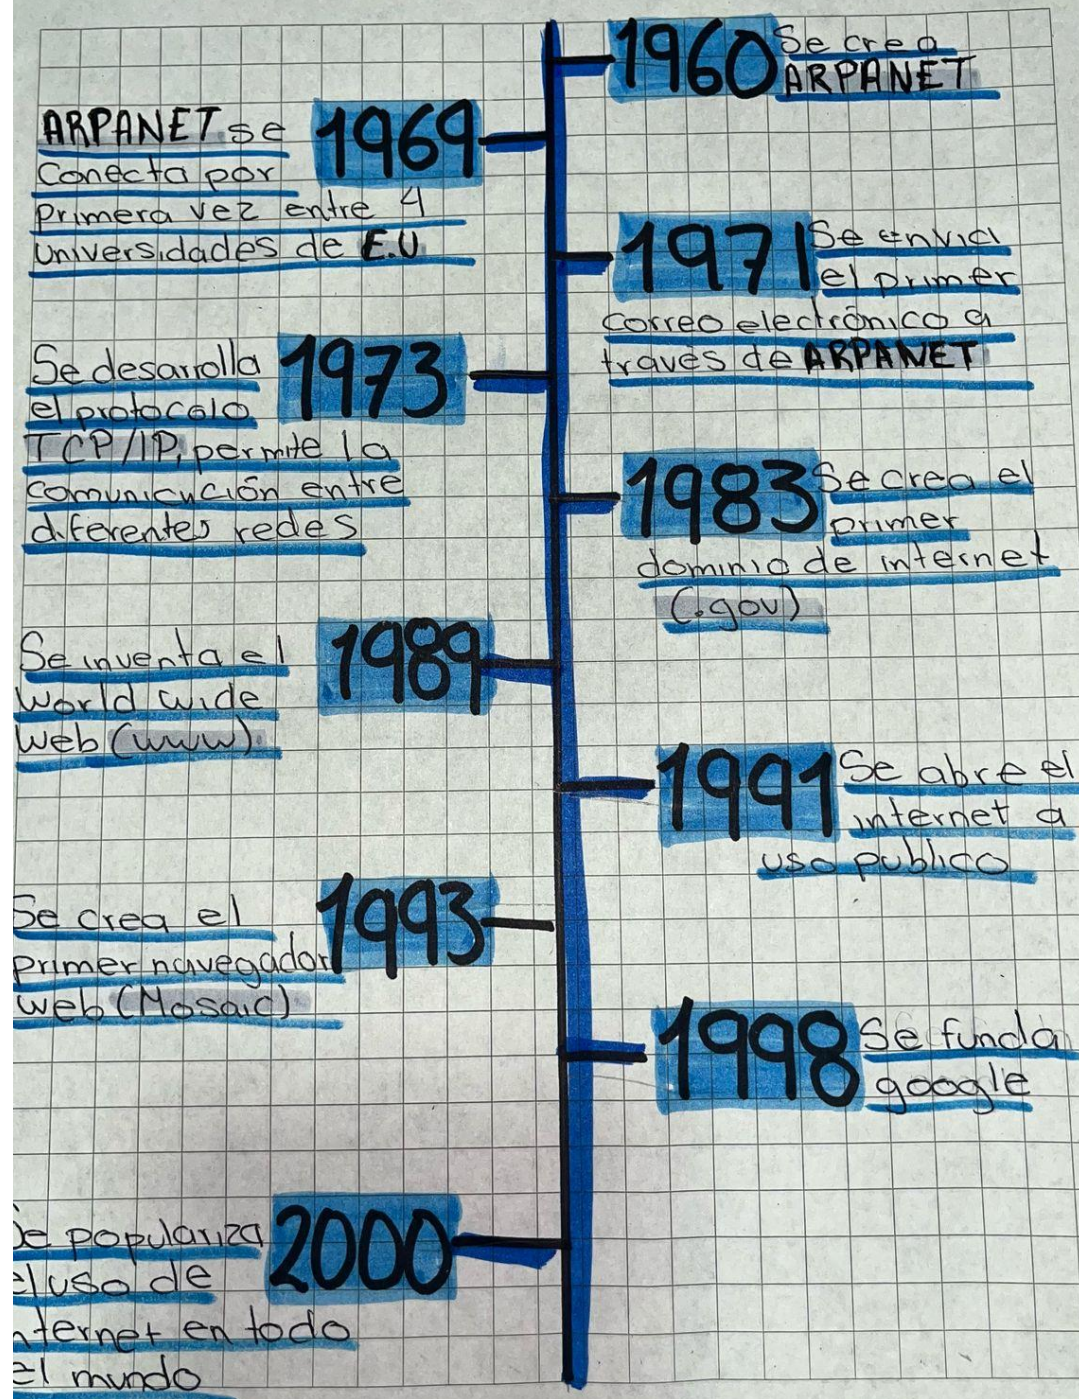 1960 Se crea
ARPANET
1969
ARPANET se
Conecta por
primera vez entre 4
universidades de E.U
1971 Se envia
el primer
correo electrónico a
través de ARPANET
1973
Se desarrolla
el protocolo
TCP/IP, permite la
comunicación entre
diferentes redes
1983 Se crea el
primer
dominio de internet
(.gov)
1989
Se inventa el
World wide
Web (www)
1991 Se abre el
internet a
uso publico
1993
Se crea el
primer navegador
web (Mosaic)
1998 Se funda
google
2000
Se populariza
el uso de
nternet en todo
el mundo